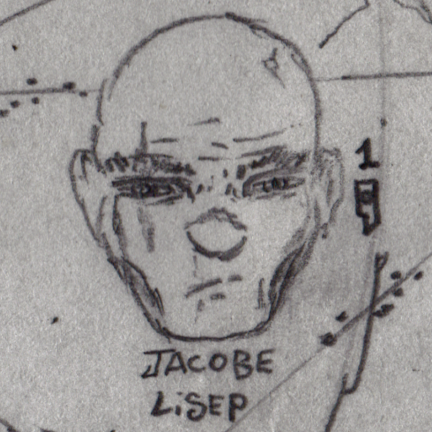 1
JACOBE
LiSEP